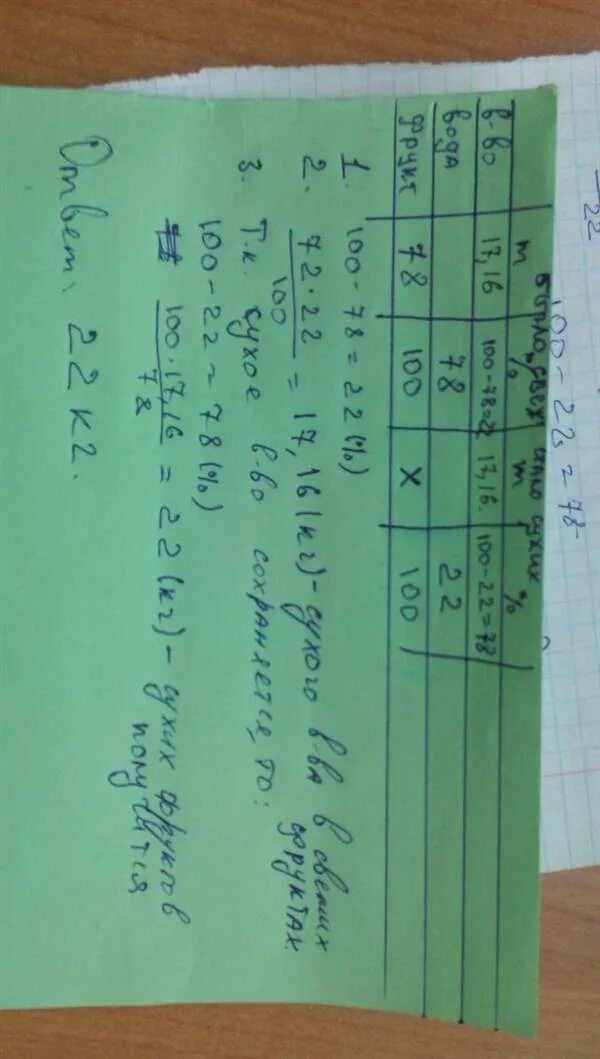 22
100 - 22 = 78
было свеж стало сухих
m % m %
в-во 17,16 100-78=22 17,16. 100-22=78
вода 78 22
фрукт 78 100 X 100
1. 100 - 78 = 22 (%)
2. 72·22/100 = 17,16 (кг) - сухого в-ва в свежих фруктах
3. Т.к. сухое в-во сохраняется, то:
100 - 22 = 78 (%)
100·17,16/78 = 22 (кг) - сухих фруктов
получится
Ответ: 22 кг.